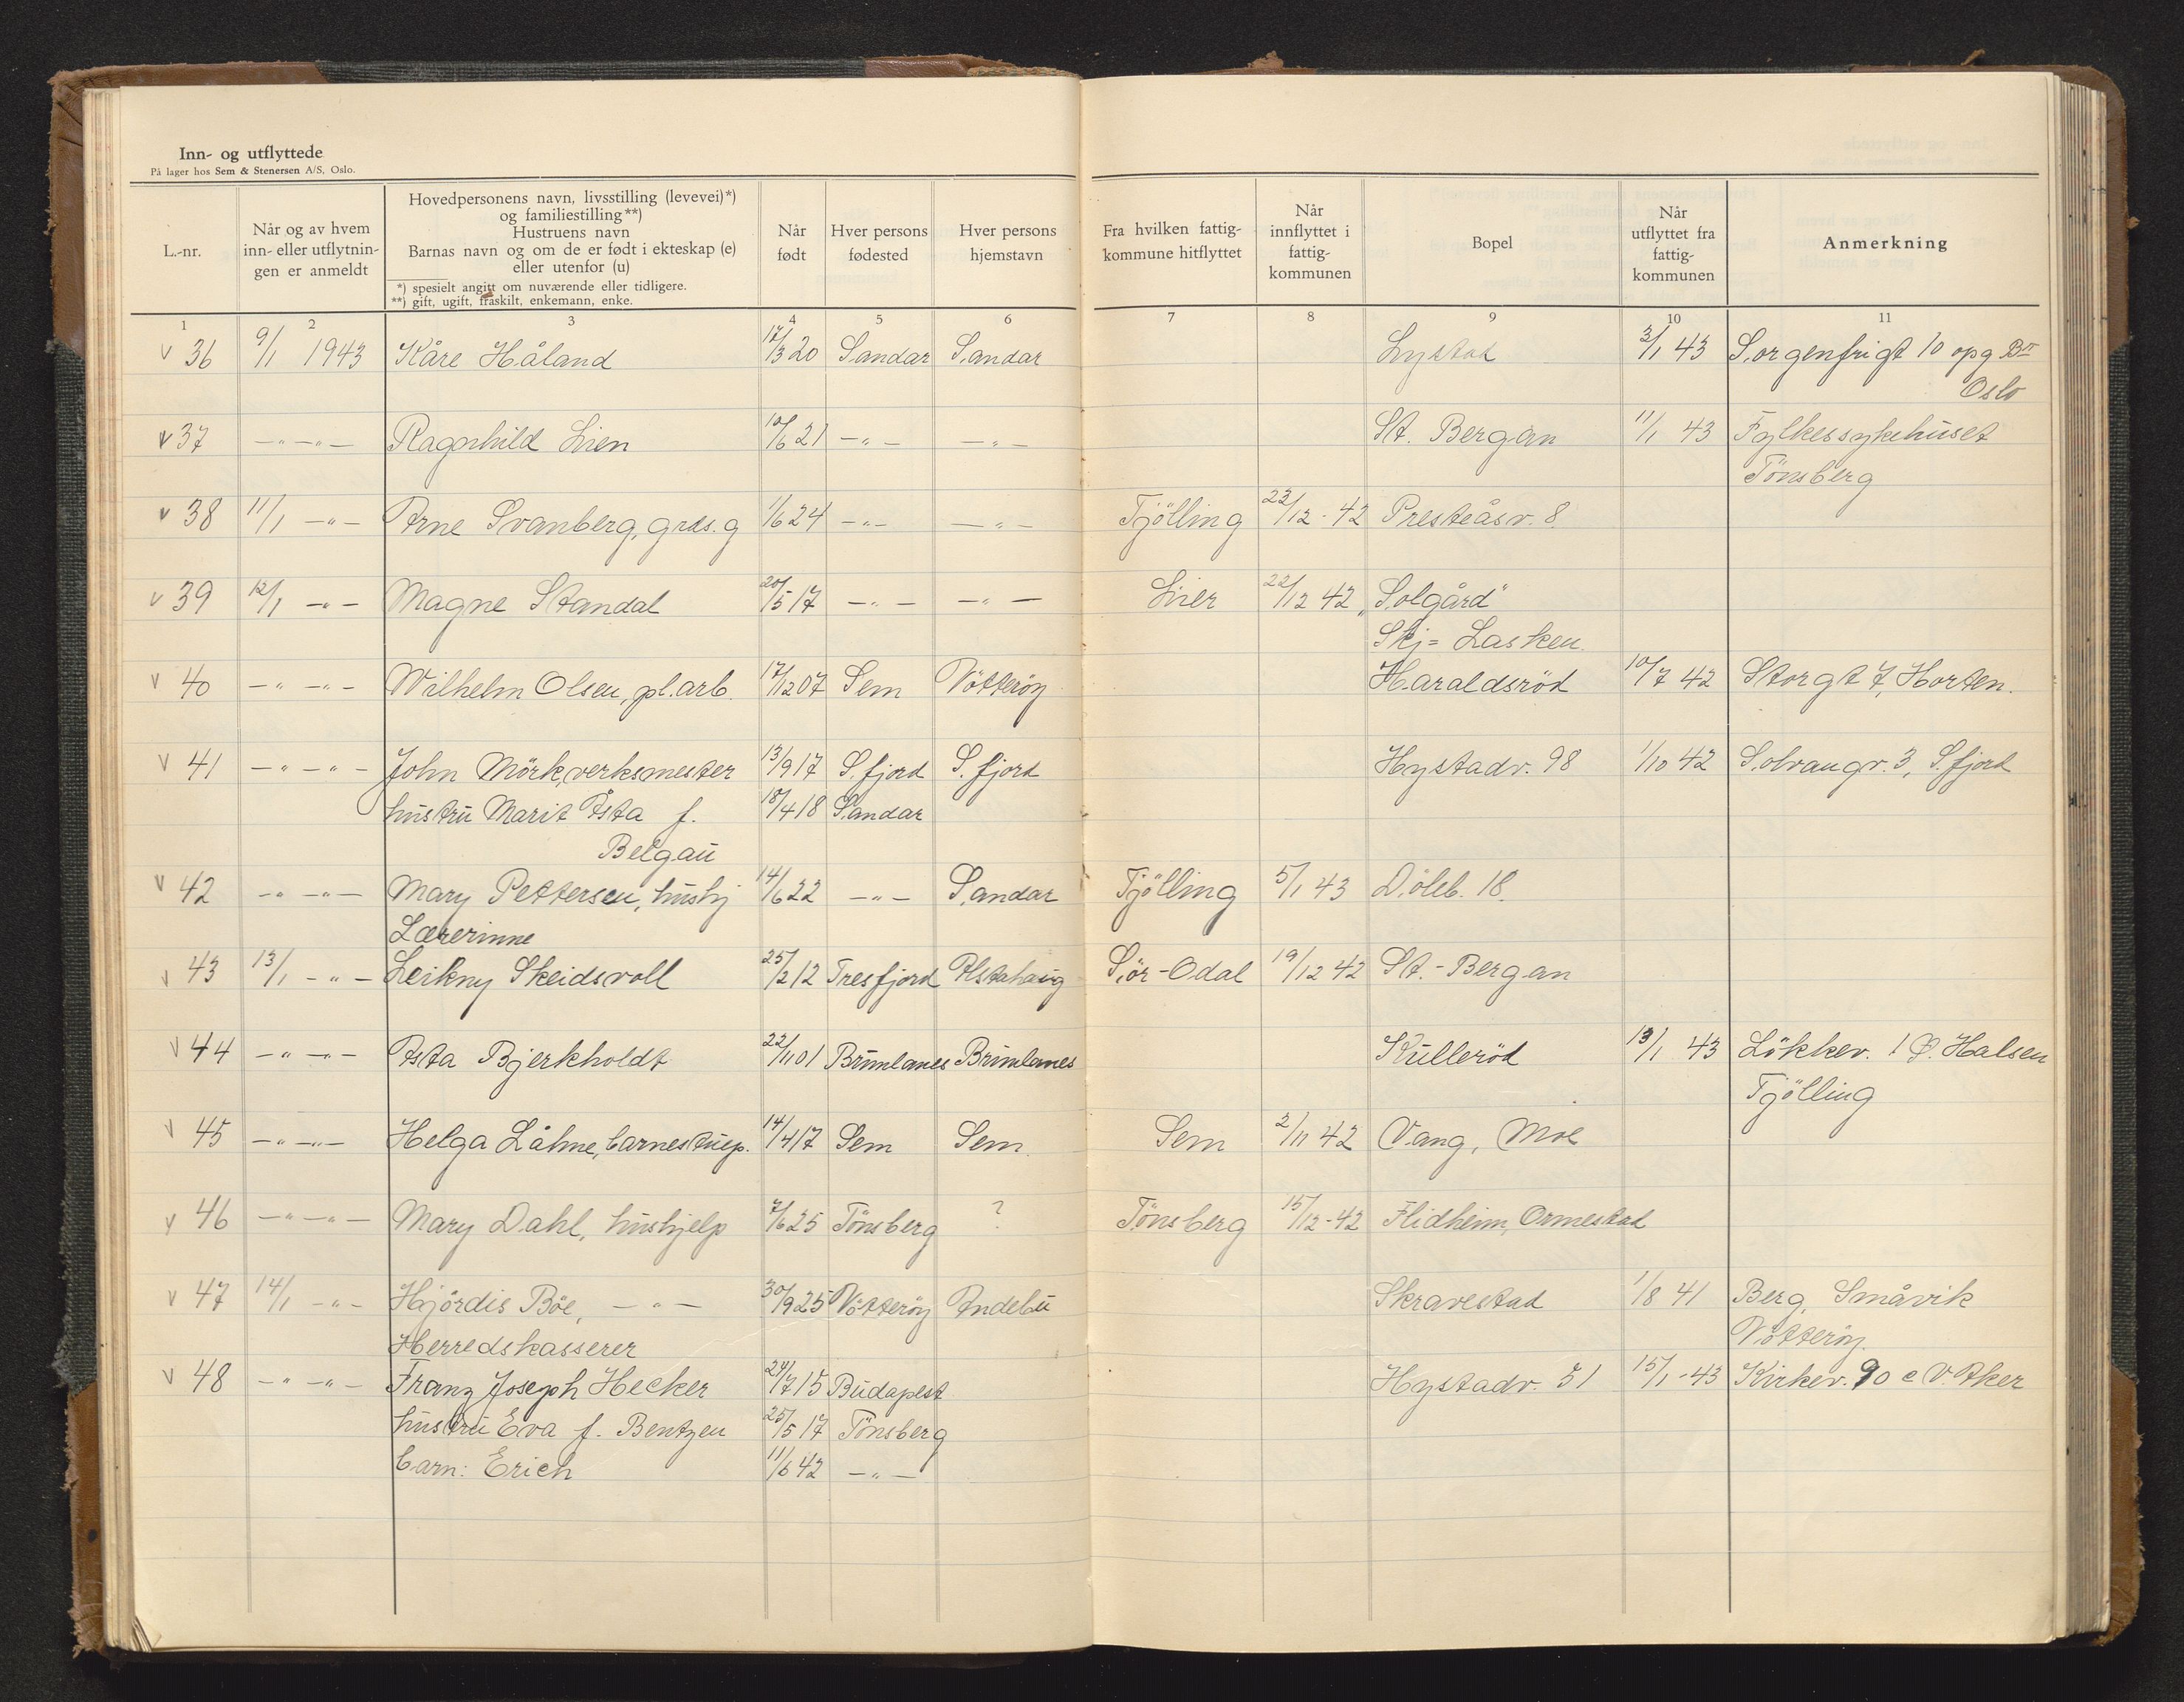 Inn- og utflyttede
På lager hos Sem & Stenersen A/S, Oslo.
L.-nr.
Når og av hvem
inn- eller utflytnin-
gen er anmeldt
Hovedpersonens navn, livsstilling (levevei)*)
og familiestilling**)
Hustruens navn
Barnas navn og om de er født i ekteskap (e)
eller utenfor (u)
*) spesielt angitt om nuværende eller tidligere.
**) gift, ugift, fraskilt, enkemann, enke.
Når
født
Hver persons
fødested
Hver persons
hjemstavn
Fra hvilken fattig-
kommune hitflyttet
Når
innflyttet i
fattig-
kommunen
Bopel
Når
utflyttet fra
fattig-
kommunen
Anmerkning
1 2 3 4 5 6 7 8 9 10 11
v 36 9/1 1943 Kåre Håland 17/3 20 Sandar Sandar Lystad 2/1 43 Sorgenfrigt 10 opg B
Oslo
v 37 -"- -"- Ragnhild Lien 10/6 21 -"- -"- St. Bergan 11/1 43 Fylkessykehuset
Tönsberg
v 38 11/1 -"- Arne Svanberg, grds.g 1/6 24 -"- -"- Tjölling 22/12-42 Presteåsv. 8
v 39 12/1 -"- Magne Standal 20/5 17 -"- -"- Lier 22/12 42 "Solgård"
Skj= Lasken
v 40 -"- -"- Wilhelm Olsen, pl.arb. 17/12 07 Sem Nötteröy Haraldsröd 10/7 42 Storgt 7, Horten.
v 41 -"- -"- John Mörk, verksmester 13/9 17 S.fjord S.fjord Hystadv. 98 1/10 42 Solvangv. 3, S.fjord
hustru Marit Åsta f. 18/4 18 Sandar
Belgau
v 42 -"- -"- Mary Pettersen, hushj 14/6 22 -"- Sandar Tjölling 5/1 43 Döleb. 18.
Lærerinne
v 43 13/1 -"- Leikny Skeidsvoll 25/2 12 Tresfjord Alstahaug Sör-Odal 19/12 42 St.-Bergan
v 44 -"- -"- Asta Bjerkholdt 22/11 01 Brunlanes Brunlanes Kulleröd 13/1 43 Lökkev. 1 Ø. Halsen
Tjölling
v 45 -"- -"- Helga Låhne, barnestuep. 14/4 17 Sem Sem. Sem 2/11 42 Vang, Moe
v 46 -"- -"- Mary Dahl, hushjelp 7/6 25 Tönsberg ? Tönsberg 15/12-42 Flidheim, Ormestad
v 47 14/1 -"- Hjördis Böe, -"- 30/9 25 Nötteröy Andebu Skravestad 1/8 41 Berg, Småvik
Nötteröy.
Herredskasserer
v 48 -"- -"- Franz Joseph Hecker 24/7 15 Budapest Hystadv. 51 15/1-43 Kirkev. 90 c V. Aker
hustru Eva f. Bentzen 25/5 17 Tönsberg
barn: Erich 11/6 42 -"-